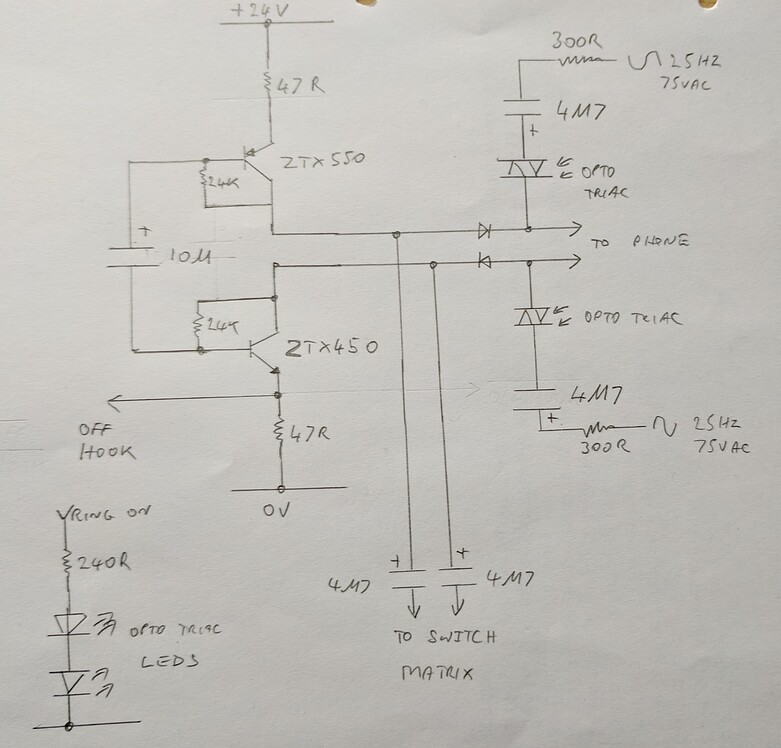 +24V
47R
ZTX550
24K
+
10M
24K
ZTX450
OFF
HOOK
47R
0V
300R
25HZ
75VAC
4M7
+
OPTO
TRIAC
TO PHONE
OPTO TRIAC
4M7
+
300R
25HZ
75VAC
RING ON
240R
OPTO TRIAC
LEDS
+
4M7
+
4M7
TO SWITCH
MATRIX